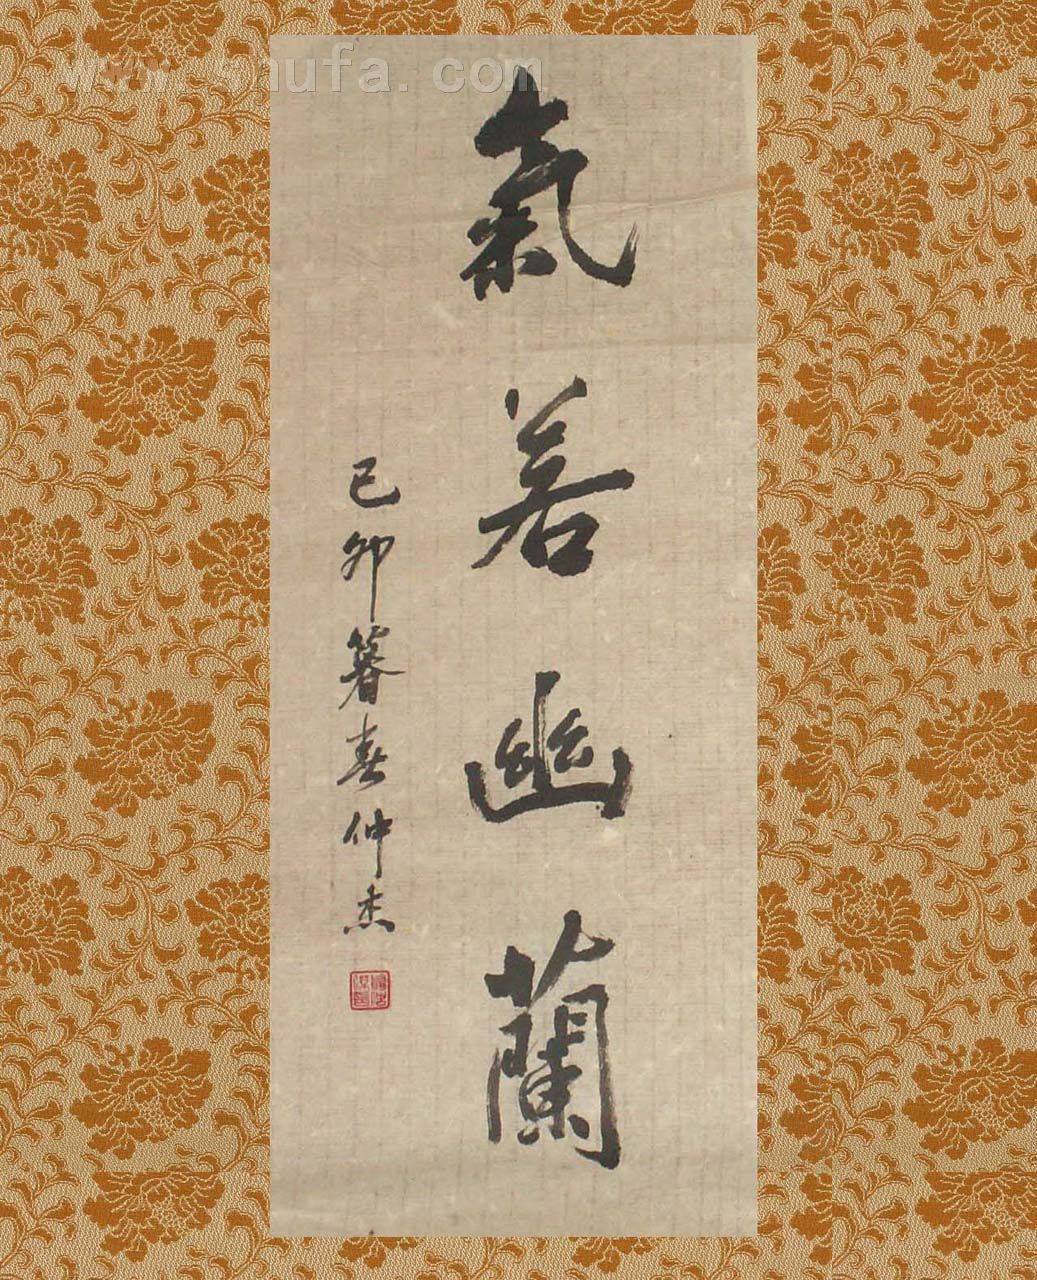 www.shufa.com
氣若幽蘭
己卯暮春仲杰